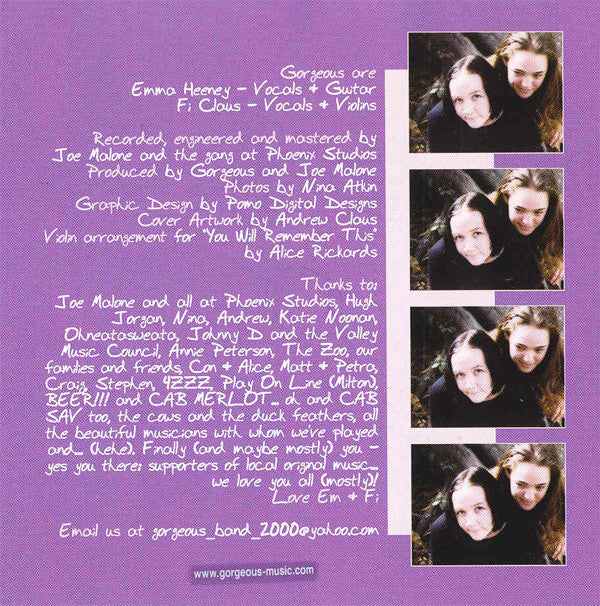 Gorgeous are
Emma Heeney - Vocals & Guitar
Fi Claus - Vocals & Violins
Recorded, engineered and mastered by
Joe Malone and the gang at Phoenix Studios
Produced by Gorgeous and Joe Malone
Photos by Nina Atkin
Graphic Design by Pomo Digital Designs
Cover Artwork by Andrew Claus
Violin arrangement for "You Will Remember This"
by Alice Rickards
Thanks to:
Joe Malone and all at Phoenix Studios, Hugh
Jorgan, Nina, Andrew, Katie Noonan,
Ohneatasweata, Johnny D and the Valley
Music Council, Annie Peterson, The Zoo, our
families and friends, Con & Alice, Matt & Petra,
Craig, Stephen, 4ZZZ, Play On Line (Milton),
BEER!!! and CAB MERLOT... oh and CAB
SAV too, the cows and the duck feathers, all
the beautiful musicians with whom we've played
and.... (hehe). Finally (and maybe mostly) you -
yes you there: supporters of local original music....
we love you all (mostly)!
Love Em & Fi
Email us at gorgeous_band_2000@yahoo.com
www.gorgeous-music.com